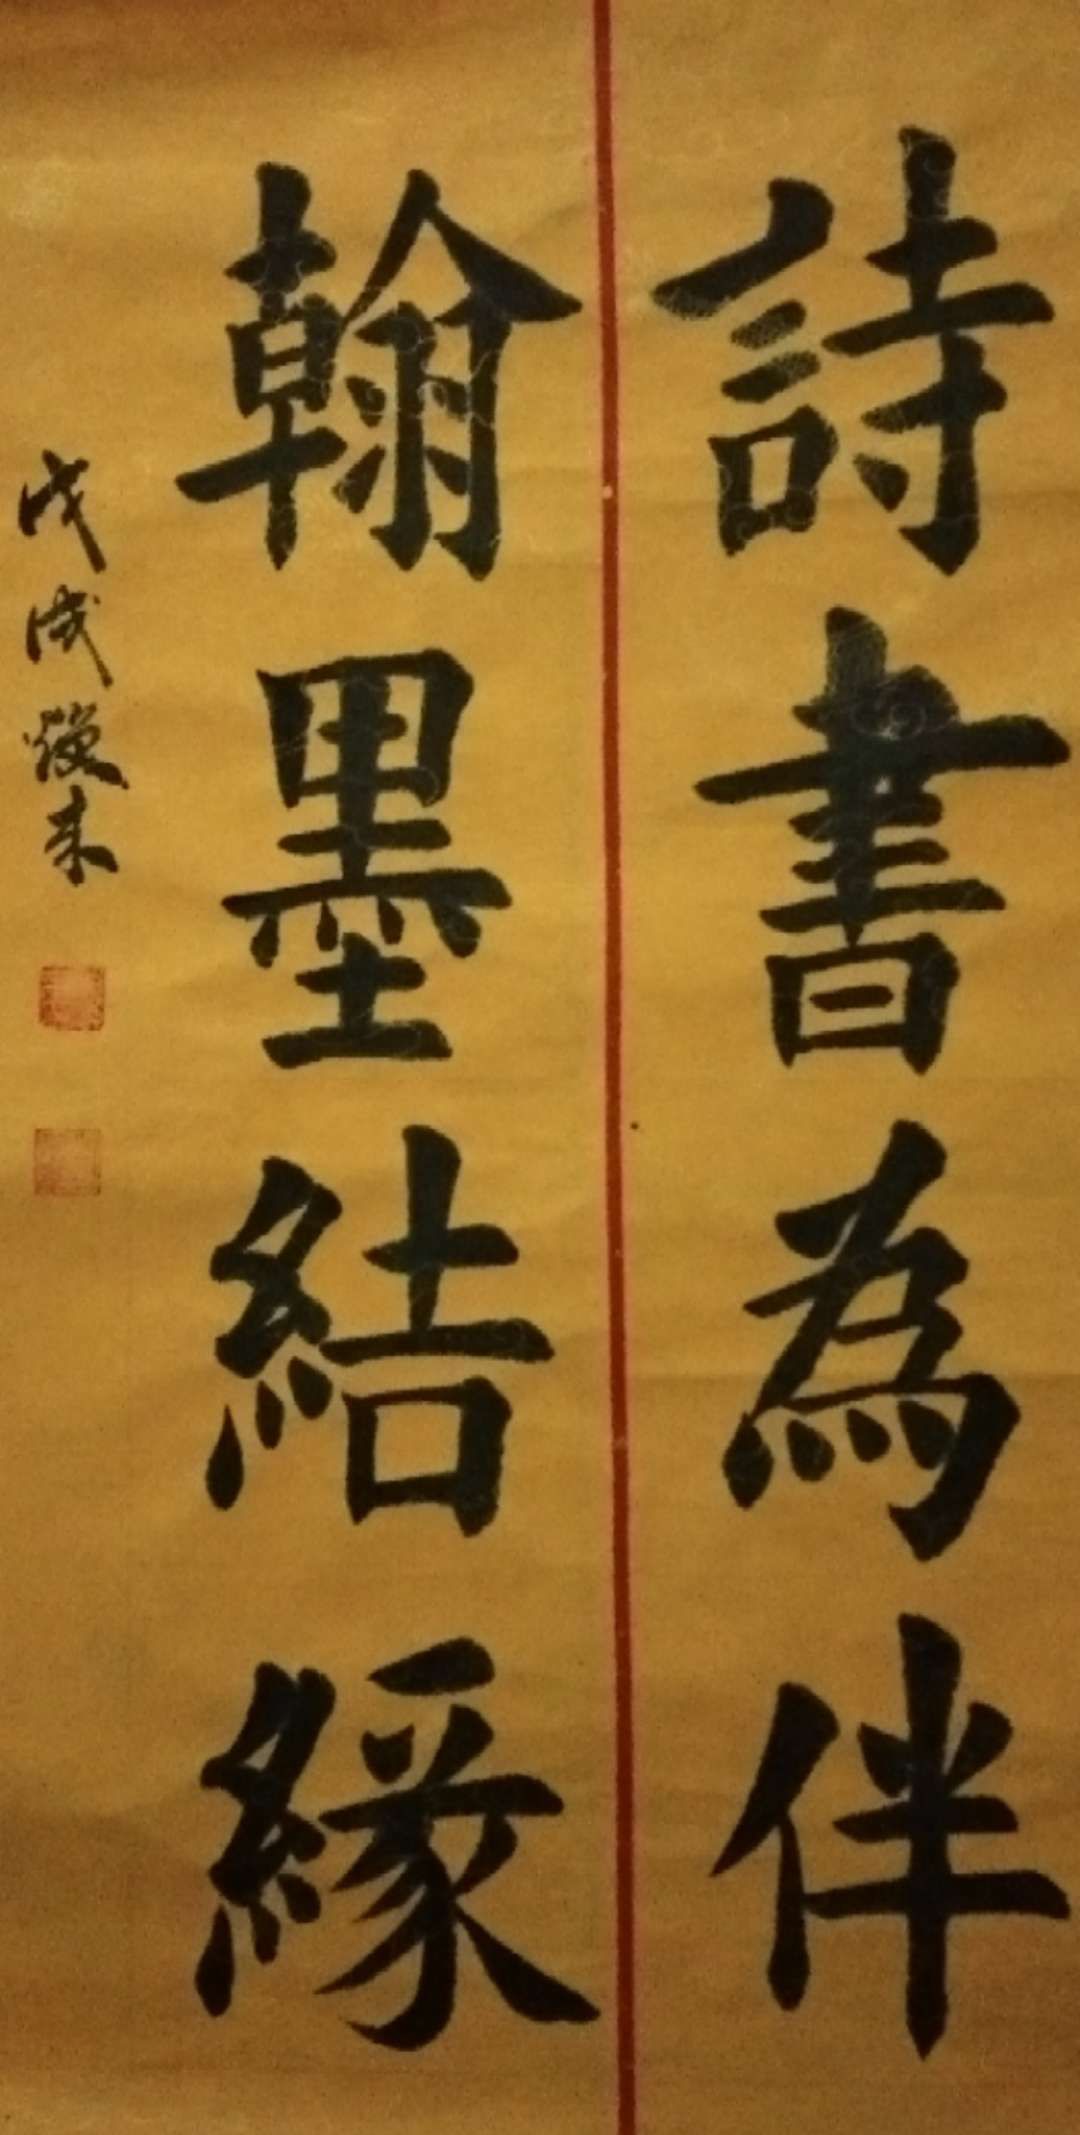 詩書為伴
翰墨結緣
戊戌